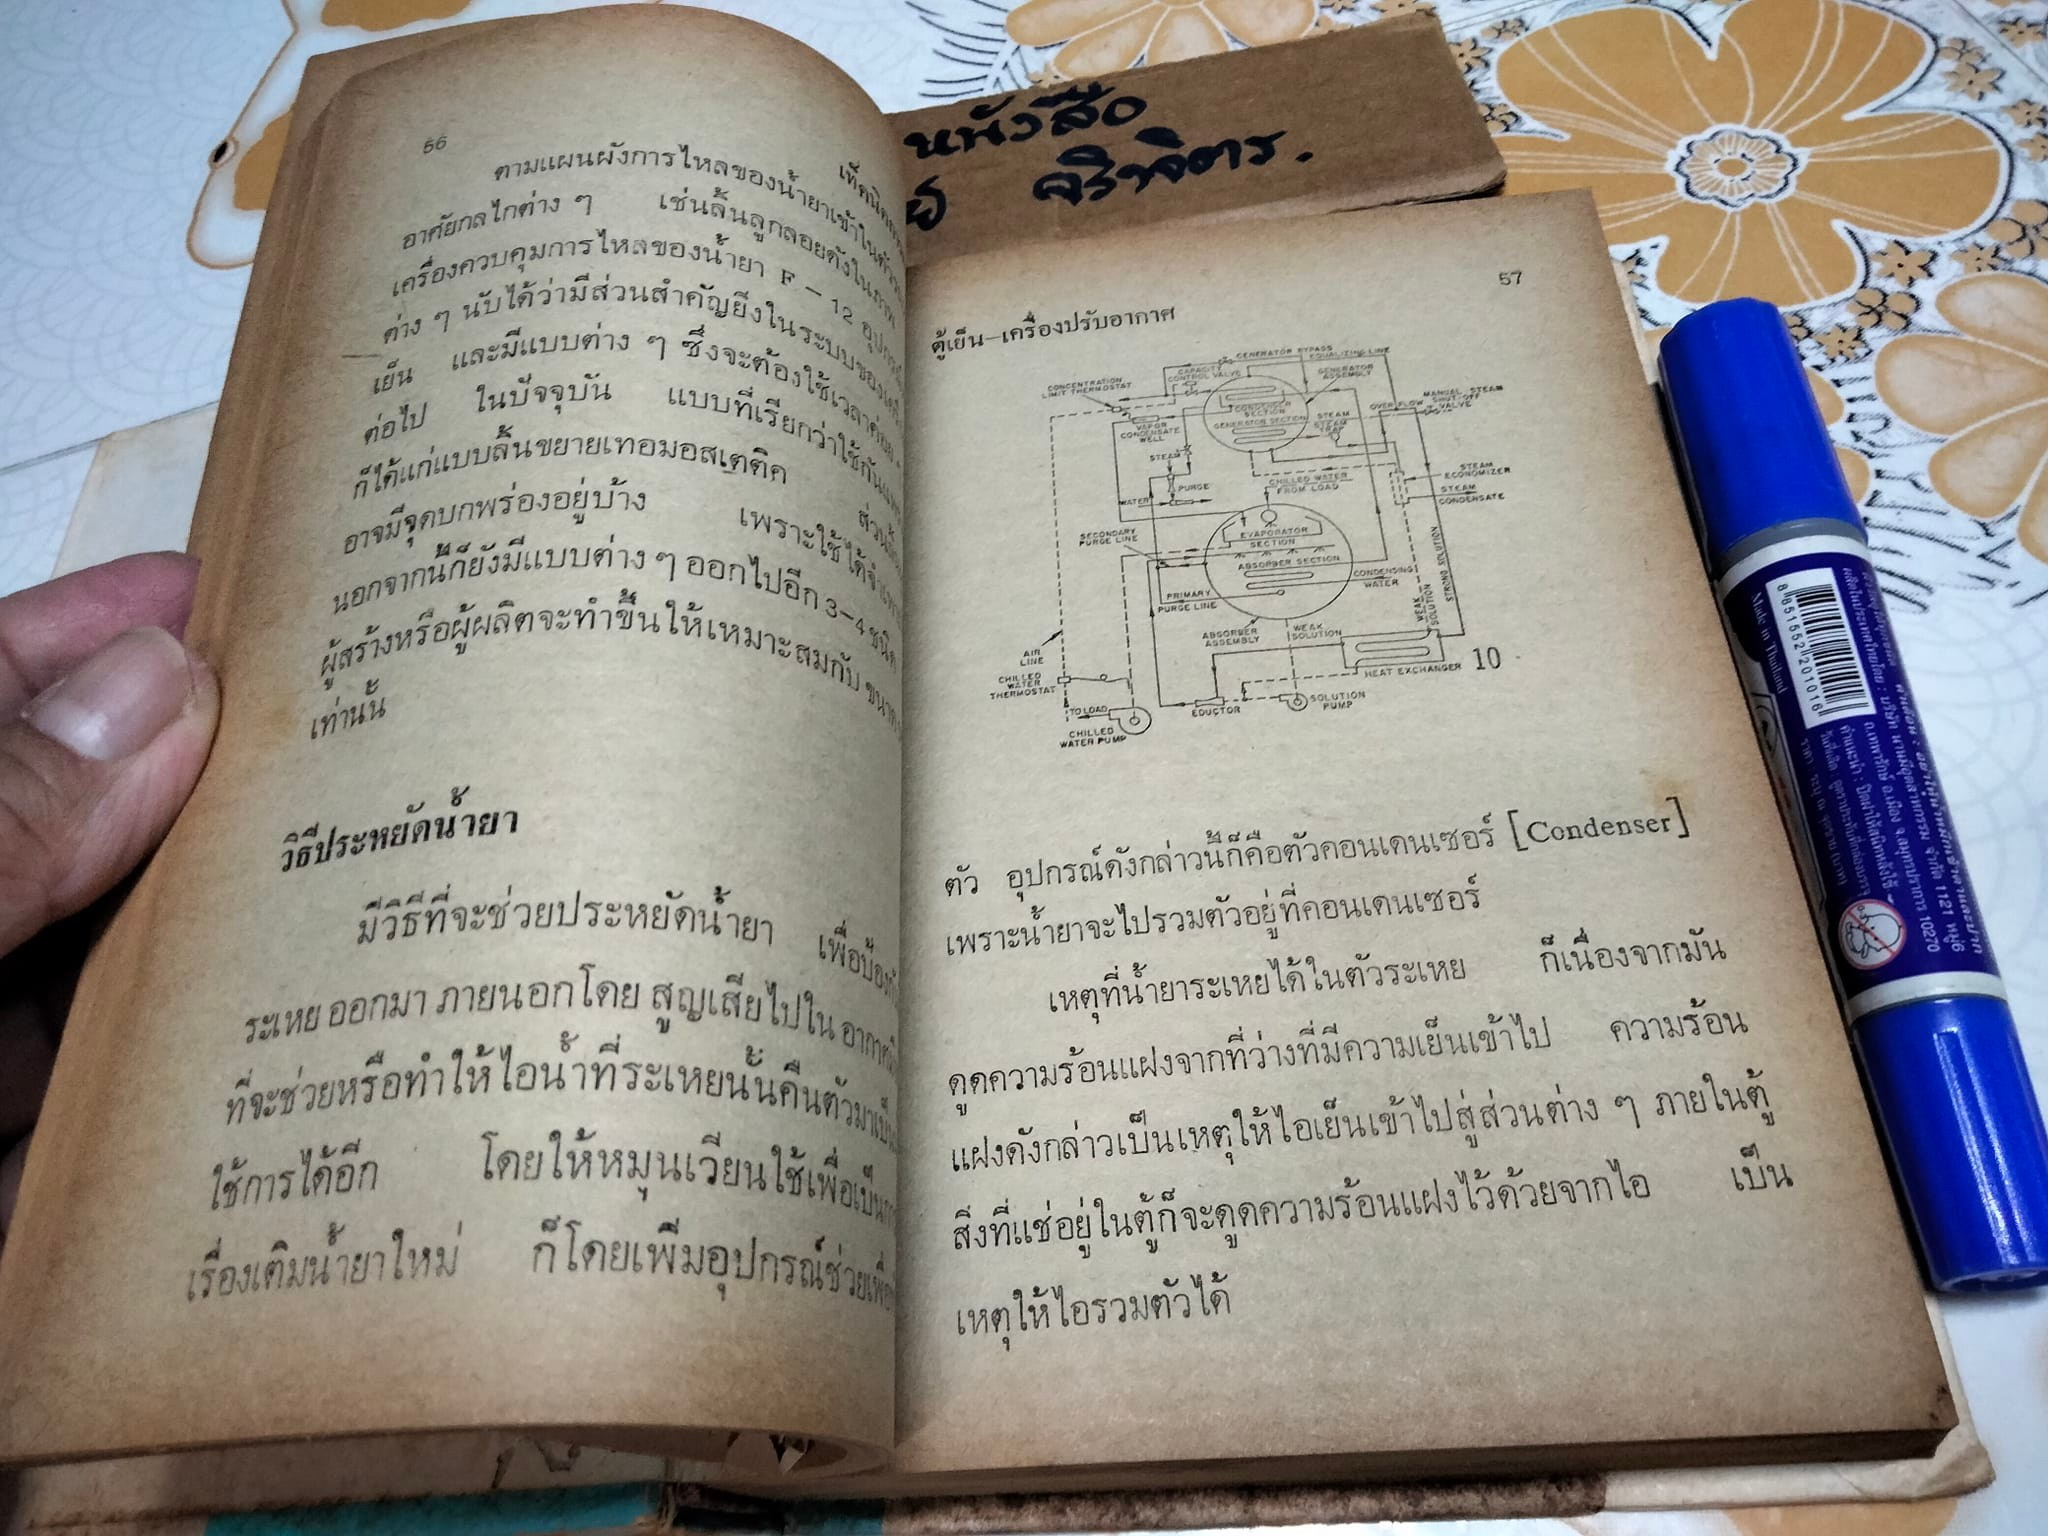 56
ตามแผนผังการไหลของน้ำยาเข้าในตัว
อาศัยกลไกต่าง ๆ เช่นลิ้นลูกลอยดังในภาพ
เครื่องควบคุมการไหลของน้ำยา F – 12
ต่าง ๆ นับได้ว่ามีส่วนสำคัญยิ่งในระบบของ
เย็น และมีแบบต่าง ๆ ซึ่งจะต้องใช้เวลา
ต่อไป ในปัจจุบัน แบบที่เรียกว่าใช้กัน
ก็ได้แก่แบบลิ้นขยายเทอมอสเตติค
อาจมีจุดบกพร่องอยู่บ้าง เพราะใช้ได้
นอกจากนี้ก็ยังมีแบบต่าง ๆ ออกไปอีก 3–4 ชนิด
ผู้สร้างหรือผู้ผลิตจะทำขึ้นให้เหมาะสมกับ ขนาด
เท่านั้น
วิธีประหยัดน้ำยา
มีวิธีที่จะช่วยประหยัดน้ำยา เพื่อป้องกั
ระเหย ออกมา ภายนอกโดย สูญเสียไปใน
ที่จะช่วยหรือทำให้ไอน้ำที่ระเหยนั้นคืนตัวมาเป็น
ใช้การได้อีก โดยให้หมุนเวียนใช้เพื่อเป็น
เรื่องเติมน้ำยาใหม่ ก็โดยเพิ่มอุปกรณ์ช่วย
หนังสือ
จริจิตร.
57
ตู้เย็น–เครื่องปรับอากาศ
GENERATOR BYPASS
EQUALIZING LINE
CAPACITY
CONTROL VALVE
GENERATOR
ASSEMBLY
CONCENTRATION
LIMIT THERMOSTAT
MANUAL STEAM
SHUT-OFF
VALVE
OVER FLOW
CONDENSER
SECTION
GENERATOR SECTION
STEAM
TRAP
VAPOR
CONDENSATE
WELL
STEAM
PURGE
WATER
CHILLED WATER
FROM LOAD
STEAM
ECONOMIZER
STEAM
CONDENSATE
SECONDARY
PURGE LINE
EVAPORATOR
SECTION
ABSORBER SECTION
CONDENSING
WATER
PRIMARY
PURGE LINE
WEAK
SOLUTION
STRONG SOLUTION
ABSORBER
ASSEMBLY
WEAK
SOLUTION
AIR
LINE
HEAT EXCHANGER 10
CHILLED
WATER
THERMOSTAT
TO LOAD
EDUCTOR
SOLUTION
PUMP
CHILLED
WATER PUMP
ตัว อุปกรณ์ดังกล่าวนี้ก็คือตัวคอนเดนเซอร์ [Condenser]
เพราะน้ำยาจะไปรวมตัวอยู่ที่คอนเดนเซอร์
เหตุที่น้ำยาระเหยได้ในตัวระเหย ก็เนื่องจากมัน
ดูดความร้อนแฝงจากที่ว่างที่มีความเย็นเข้าไป ความร้อน
แฝงดังกล่าวเป็นเหตุให้ไอเย็นเข้าไปสู่ส่วนต่าง ๆ ภายในตู้
สิ่งที่แช่อยู่ในตู้ก็จะดูดความร้อนแฝงไว้ด้วยจากไอ เป็น
เหตุให้ไอรวมตัวได้
Made in Thailand
8 851552 201016